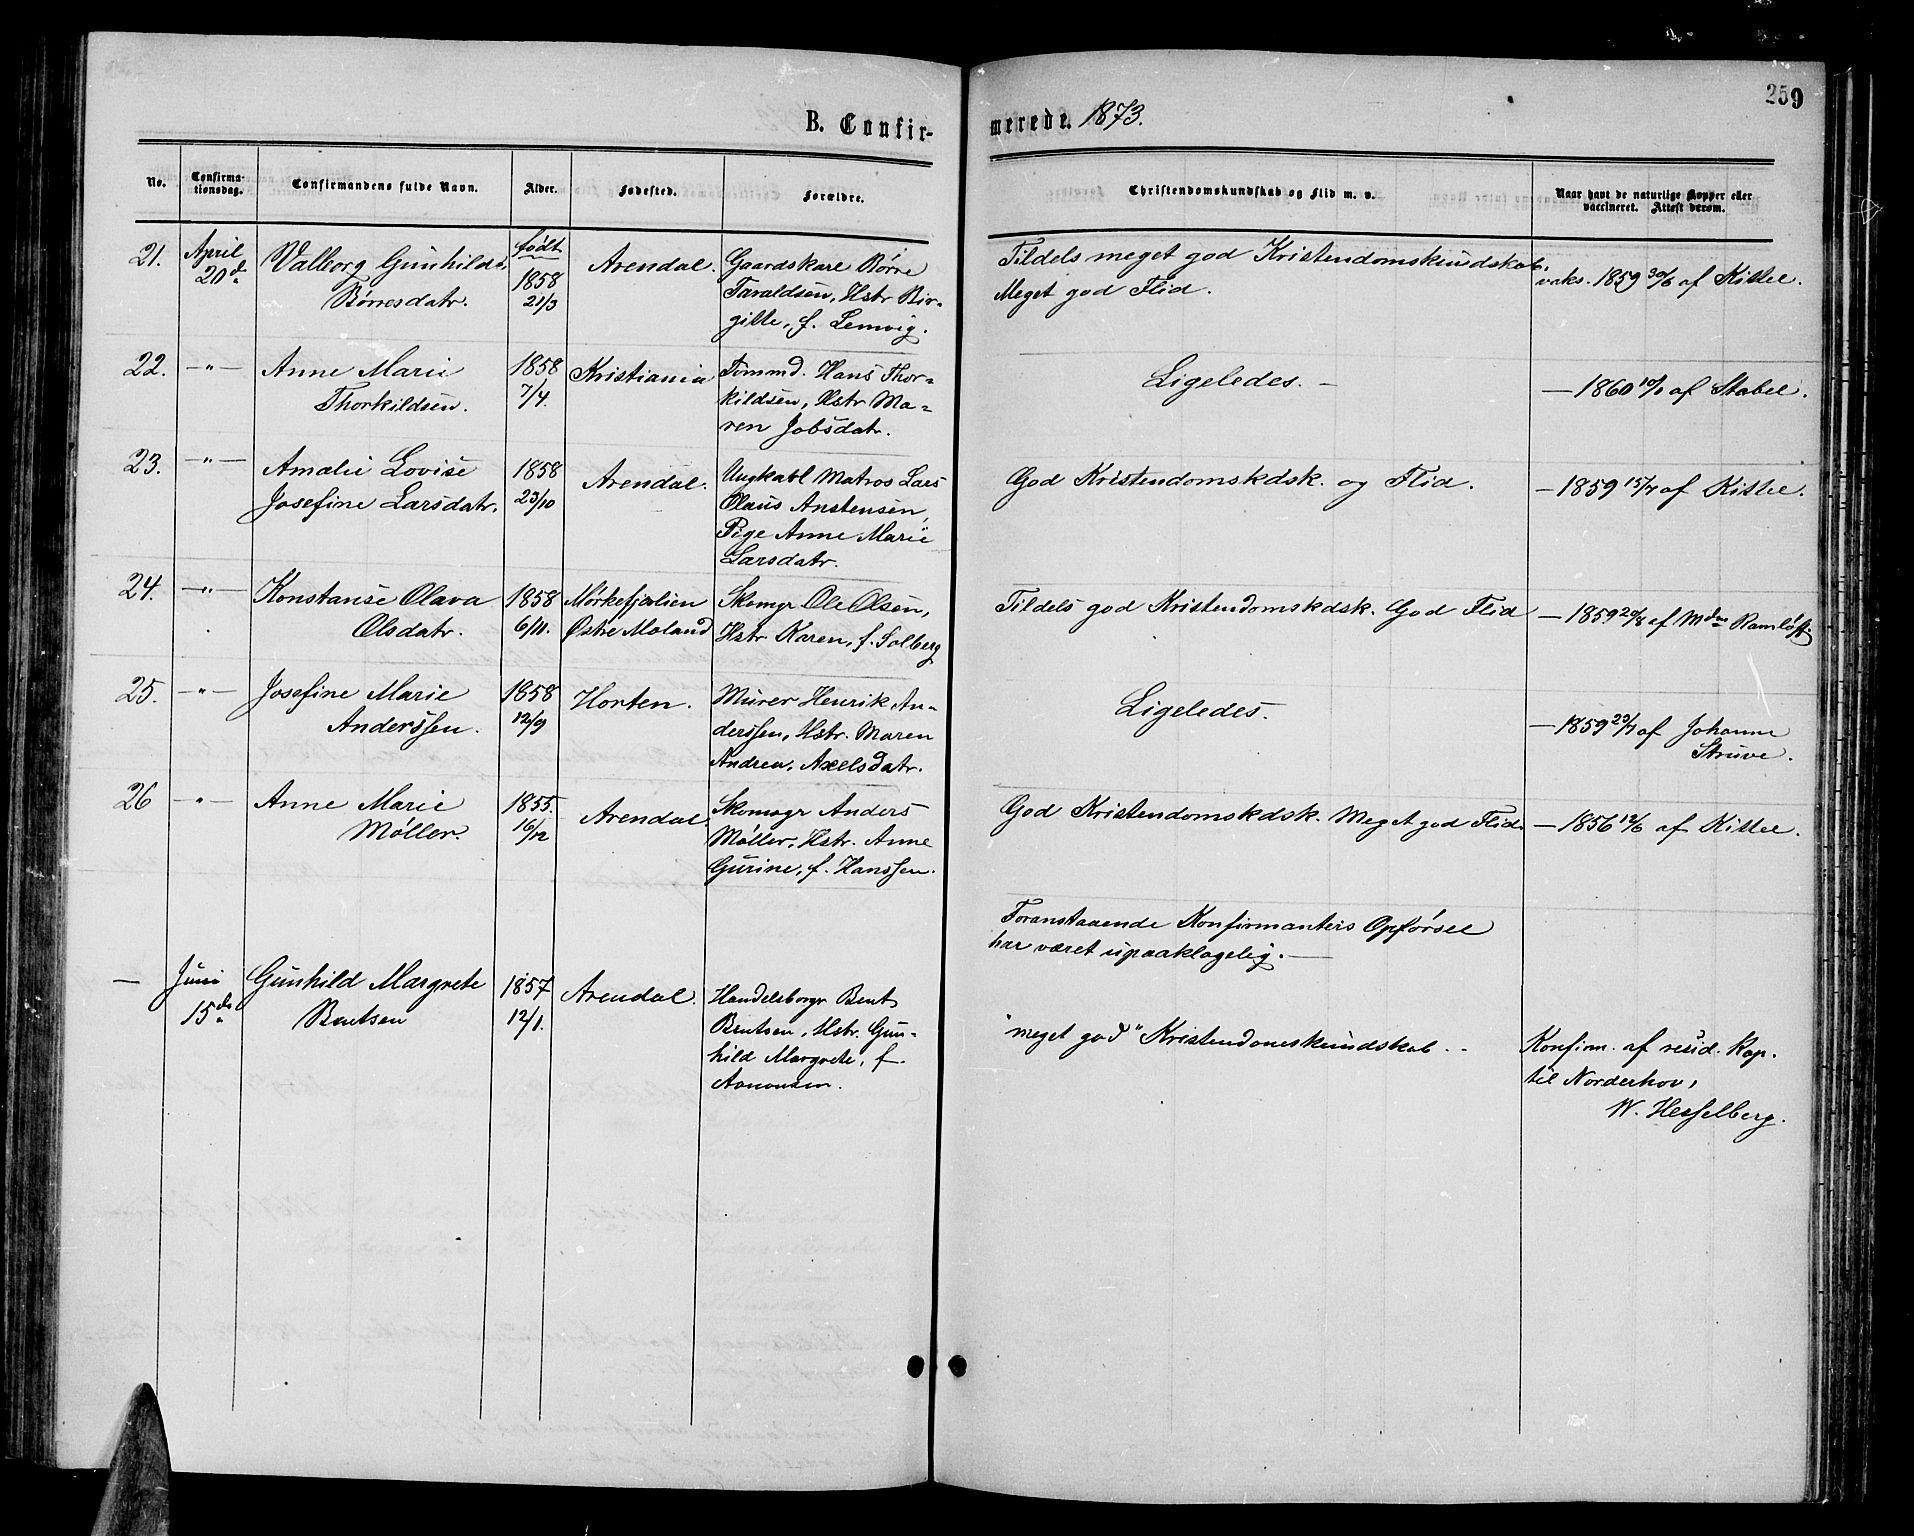 259
B. Confirmerede. 1873.
No. Confirmationsdag. Confirmandens fulde Navn. Alder. Fødested. Forældre. Christendomskundskab og Flid m. v. Naar havt de naturlige Kopper eller vaccineret. Attest derom.
21. April 20d. Valborg Gunhild født 1858 21/3 Arendal. Gaardskarl Børre
Børresdatr. Taraldsen, Hstr Bir-
gitte, f. Lemvig.
Tildels meget god Kristendomskundskab.
Meget god Flid.
vaks. 1859 30/6 af Kittel.
22. —"— Anne Marie 1858 7/4. Kristiania Tømmd. Hans Thor-
Thorkildsen. kildsen, Hstr Ma-
ren Jobsdatr.
Ligeledes. —
— 1860 10/1 af Stabel.
23. —"— Amalie Lovise 1858 23/10 Arendal. Ungkarl Matros Lars
Josefine Larsdatr. Olaus Anstensen,
Pige Anne Marie
Larsdatr.
God Kristendomskdsk. og Flid.
— 1859 15/7 af Kittel.
24. —"— Konstanse Olava 1858 6/11. Mørkefjælien Skomgr Ole Olsen,
Olsdatr. Østre Moland Hstr Karen, f. Solberg
Tildels god Kristendomskdsk. God Flid
— 1859 20/8 af Mdm Ramløff.
25. —"— Josefine Marie 1858 12/9 Horten. Murer Henrik An-
Anderssen. derssen, Hstr. Maren
Andrea, Axelsdatr.
Ligeledes.
— 1859 23/7 af Johanne
Struve.
26 —"— Anne Marie 1855. 16/12 Arendal. Skomagr Anders
Møller. Møller, Hstr. Anne
Gurine, f. Hanssen.
God Kristendomskdsk. Meget god Flid.
— 1856 12/6 af Kittel.
Foranstaaende Konfirmanters Opførsel
har været upaaklagelig. —
— Juni 15de Gunhild Margrete 1857 12/1. Arendal. Handelsborgr Bent
Bentsen Bentsen, Hstr. Gun-
hild Margrete, f.
Aanonsen.
"meget god" Kristendomskundskab. -
Konfirm. af resid. Kap.
til Norderhov,
W. Hesselberg.